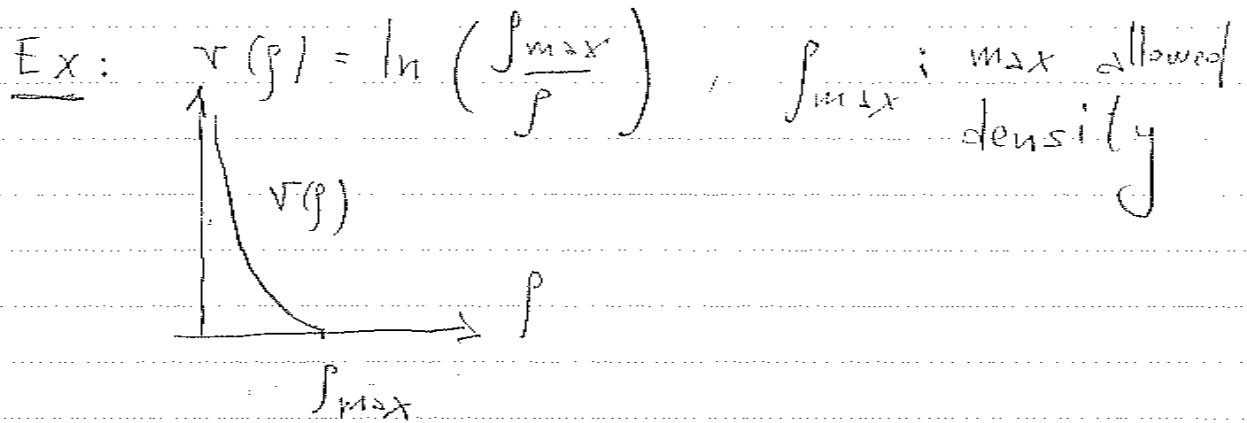 Ex: v(ρ) = ln (ρmax / ρ), ρmax : max allowed
density
v(ρ)
ρ
ρmax